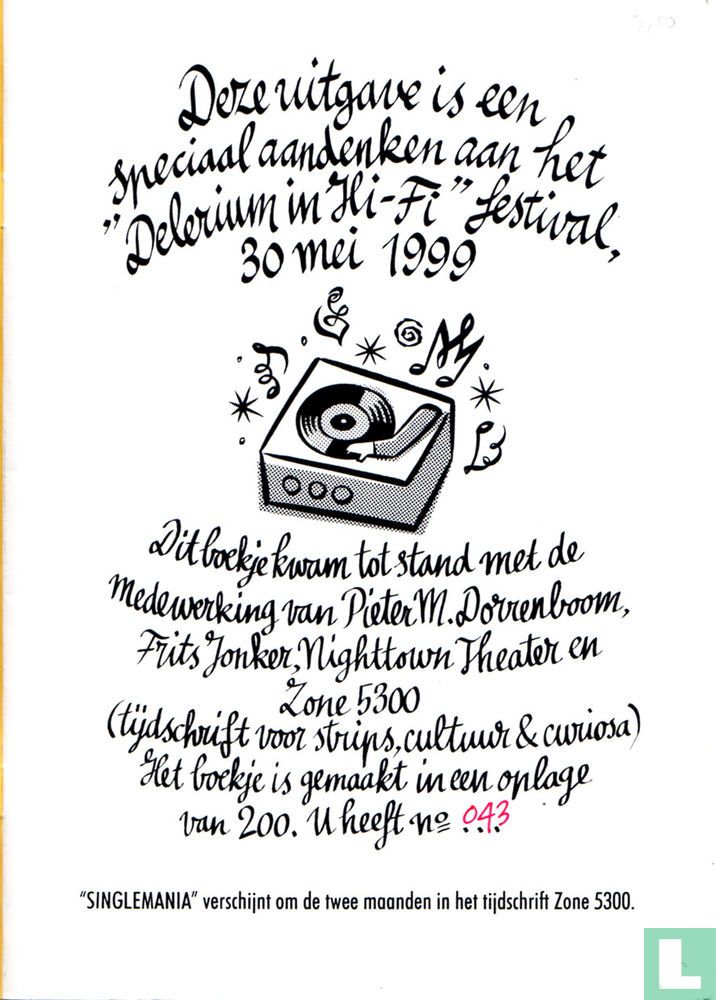 Deze uitgave is een
speciaal aandenken aan het
"Delerium in Hi-Fi" festival,
30 mei 1999
Dit boekje kwam tot stand met de
medewerking van Pieter M. Dorrenboom,
Frits Jonker, Nighttown Theater en
Zone 5300
(tijdschrift voor strips, cultuur & curiosa)
Het boekje is gemaakt in een oplage
van 200. U heeft no 043
"SINGLEMANIA" verschijnt om de twee maanden in het tijdschrift Zone 5300.
L